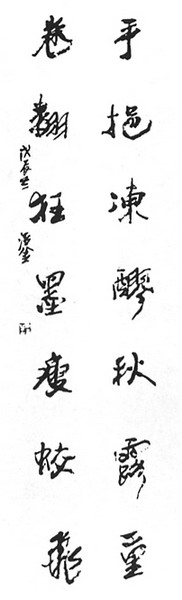 手挹凍醪秋露重
卷翻狂墨瘦蛟飛
戊辰